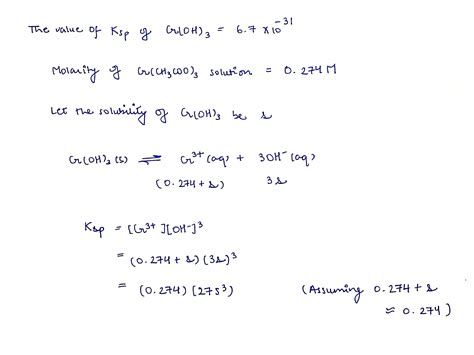 The value of Ksp of Cr(OH)3 = 6.7 x10^-31
Molarity of Cr(CH3COO)3 solution = 0.274 M
Let the solubility of Cr(OH)3 be s
Cr(OH)3 (s) ⇌ Cr3+ (aq) + 3OH- (aq)
(0.274 + s) 3s
Ksp = [Cr3+][OH-]^3
= (0.274 + s) (3s)^3
= (0.274) (27s^3) (Assuming 0.274 + s
≈ 0.274)